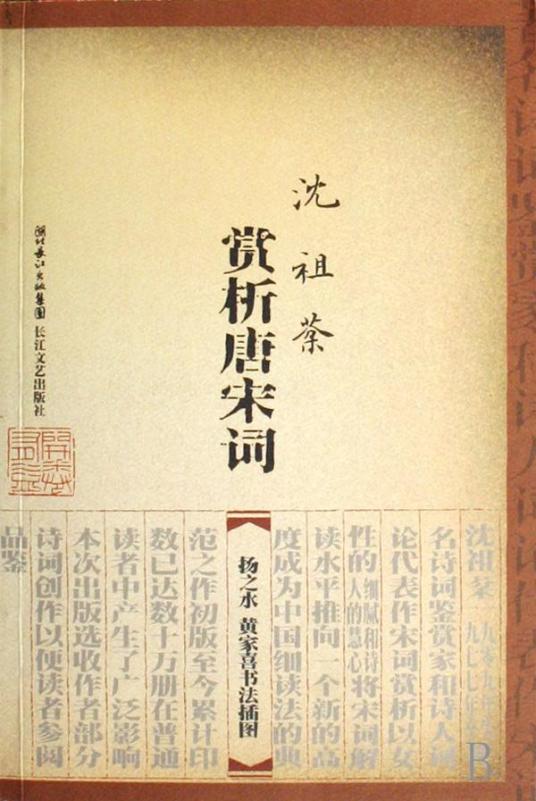 著名诗词鉴赏家和诗人词论代表作宋词
沈祖棻
赏析唐宋词
湖北长江出版集团
长江文艺出版社
开卷有益
沈祖棻一九零九年
一九七七年
名诗词鉴赏家和诗人词
论代表作宋词赏析以女
性的细腻和诗人的慧心将宋词解
读水平推向一个新的高
度成为中国细读法的典
扬之水 黄家喜书法插图
范之作初版至今累计印
数已达数十万册在普通
读者中产生了广泛影响
本次出版选收作者部分
诗词创作以便读者参阅
品鉴
B